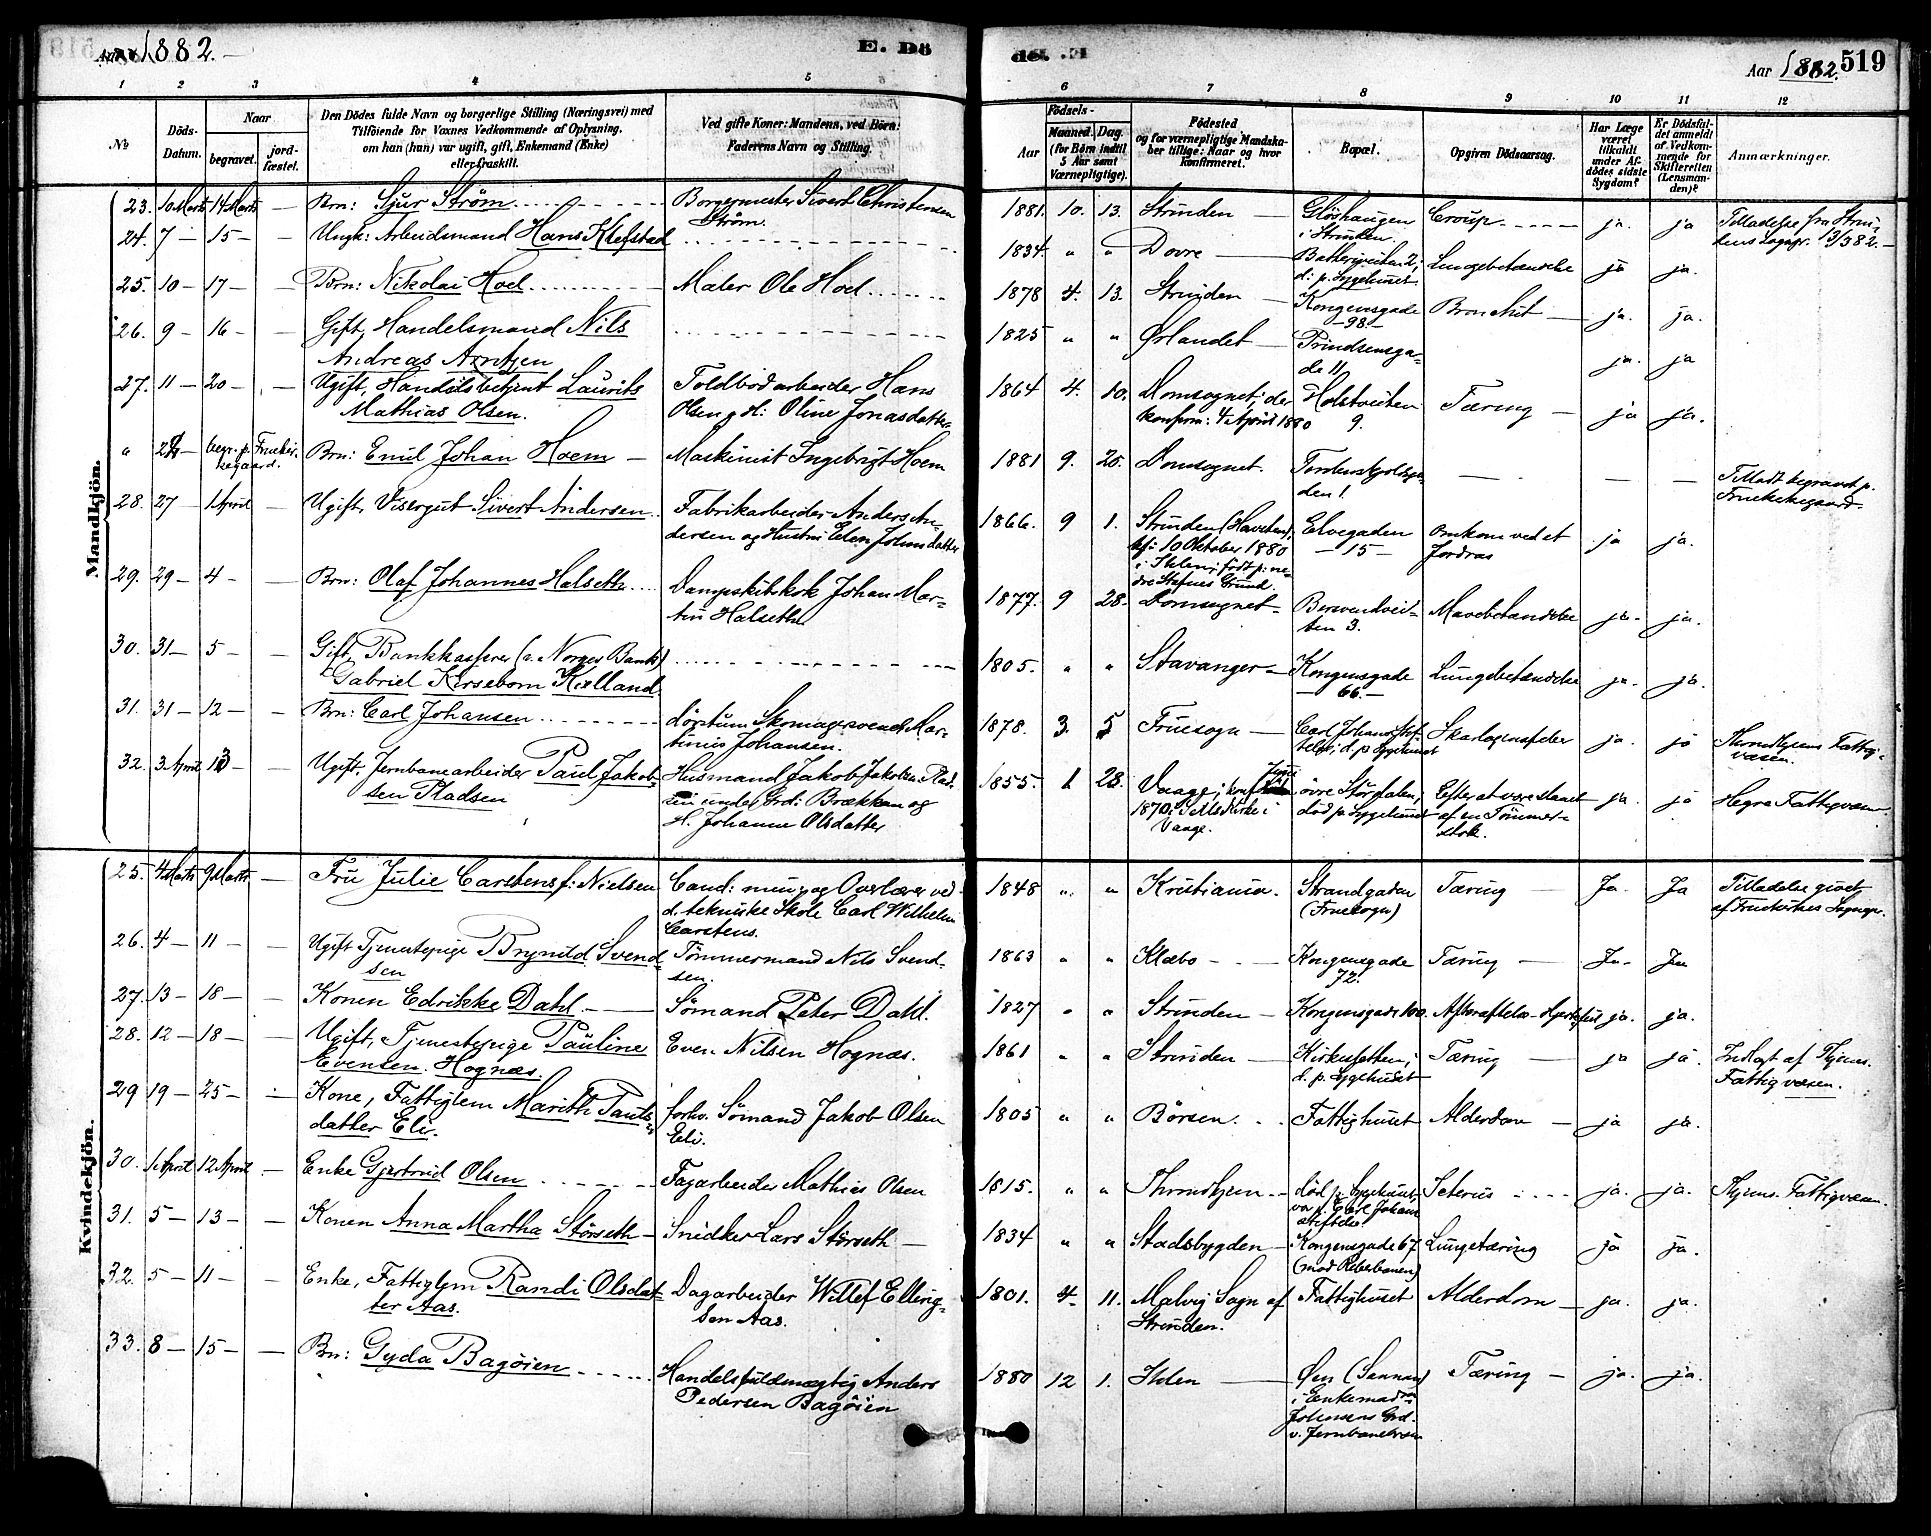 Aar 1882.
E. Dö
de. E.
Aar 1882. 519
1 2 3 4 5
6 7 8 9 10 11 12
№
Döds-Datum.
Naar
begravet.
jordfæstet.
Den Dödes fulde Navn og borgerlige Stilling (Næringsvei) med
Tilföiende for Voxnes Vedkommende af Oplysning,
om han (hun) var ugift, gift, Enkemand (Enke)
eller fraskilt.
Ved gifte Koner: Mandens, ved Börn:
Faderens Navn og Stilling.
Födsels-
Aar
Maaned. Dag.
(for Börn indtil
5 Aar samt
Værnepligtige).
Födested
og for værnepligtige Mandskaber tillige: Naar og hvor
konfirmeret.
Bopæl.
Opgiven Dödsaarsag.
Har Læge været tilkaldt under Afdödes sidste Sygdom?
Er Dödsfaldet anmeldt af Vedkommende for Skifteretten (Lensmanden)?
Anmærkninger.
Mandkjön.
23. 10 Marts 14 Marts — Brn: Sjur Ström Borgermester Sivert Christensen Ström. 1881. 10. 13. Strinden — Glöshaugen i Strinden. Croup. ja. ja Tilladelse fra Strindens Sogpr. 13/3 82.
24. 7 — 15 — — Ungk: Arbeidsmand Hans Klefstad 1834. " " Dovre — 2, d: p. Sygehuset Lungebetændelse ja ja.
25. 10 — 17 — — Brn: Nikolai Hoel Maler Ole Hoel 1878 4. 13. Strinden — Kongensgade 98. Bronchit — ja. ja.
26. 9 — 16 — — Gift, Handelsmand Nils Andreas Arntzen 1825 " " Ørlandet — Prindsensgade 11 ja. ja
27. 11 — 20 — — Ugift, Handelsbetjent Laurits Mathias Olsen. Toldbodarbeider Hans Olsen g. H: Oline Jonasdatter 1864 4. 10. Domsognet; der konfirm: 4 April 1880 Holstveiten 9. Tæring — ja ja.
" 24 — begr. p. Fruekirkegaard. Brn: Emil Johan Hoem — Maskinist Ingebrigt Hoem 1881 9. 20. Domsognet. — — — Tilladt begravet p. Fruekirkegaard.
28. 27 1 April — Ugift, Visergut Sivert Andersen Fabrikarbeider Anders Andersen og Hustru Elen Johnsdatter 1866. 9 1. Strinden (Havsten), kf: 10 Oktober 1880 i Ihlen; födt p: nedre Stafnes Grund. Elvegaden 15 — Omkom ved et Jordras ja ja.
29. 29 — 4 — — Brn: Olaf Johannes Halseth Dampskibskok Johan Martin Halseth 1877. 9 28. Domsognet — 3. Mavebetændelse ja. ja.
30. 31 — 5 — — Gift, Bankkasserer (v. Norges Bank) Gabriel Kirsebom Kielland 1805. " " Stavanger — Kongensgade 66. — Lungebetændelse ja. ja.
31. 31 — 12 — — Brn: Carl Johansen Skomagersvend Martinius Johansen. 1878. 3. 5 Fruesogn — Carl Johans Stiftelse; d. p. Sygehuset Skarlagensfeber ja. ja Throndhjems Fattigvæsen.
32. 3 April 13 — Ugift, Jernbanearbeider Paul Jakobsen Pladsen Husmand Jakob Jakobsen Pladsen under Grd: Brækken og H. Johanne Olsdatter 1855. 1 28. Vaage; konf. 1870 i Kirke i Vaage. övre Stördalen; död p. Sygehuset Efter at være slaaet af en Tömmerstok. ja. ja Hegra Fattigvæsen
Kvindekjön.
25. 4 Marts 9 Marts — Fru Julie Carstens f: Nielsen Cand: min: og Overlærer ved d. tekniske Skole Carl Wilhelm Carstens. 1848 " " Kristiania. Strandgaden (Fruesogn) Tæring — Ja. Ja Tilladelse givet af Fruekirkes Sognepr.
26. 4 — 11 — — Ugift Tjenestepige Brynild Svendsen Tömmermand Nils Svendsen. 1863 " " Klæbo — Kongensgade 72. Tæring — Ja. Ja
27. 13 — 18 — — Konen Edrikke Dahl — Sömand Peter Dahl. 1827 " " Strinden — Kongensgade 100. Afkræftelse - Hjertefeil ja. ja.
28. 12 — 18 — — Ugift, Tjenestepige Pauline Evensen Hognæs. Even Nilsen Hognæs. 1861 " " Strinden — Kirkesletten; d. p. Sygehuset Tæring — ja ja Indlagt af Thjems. Fattigvæsen.
29 19 — 25 — — Kone, Fattiglem Marith Paulsdatter Eli. forhv. Sömand Jakob Olsen Eli. 1805 " " Börsen. Fattighuset Alderdom — ja ja.
30. 1 April 12 April — Enke Gjertrud Olsen Fagarbeider Mathias Olsen 1815. " " Throndhjem — död p. Sygehuset, var p. Carl Johans Stiftelse Icterus ja. ja. Thjems. Fattigvæsen
31. 5 — 13 — — Konen Anna Martha Störseth — Snidker Lars Störseth — 1834 " " Stadsbygden — Kongensgade 67 (mod Reberbanen) Lungetæring ja ja.
32. 5 — 11 — — Enke, Fattiglem Randi Olsdatter Aas. Dagarbeider Willef Ellingsen Aas. 1801. 4. 11. Malvig Sogn af Strinden. Fattighuset Alderdom — ja. ja.
33. 8 — 15 — — Brn: Gyda Bagöien Handelsfuldmægtig Anders Pedersen Bagöien 1880 12 1. Ihlen — Øen (Sannan) i Enkemadm Johnsens Grd. v. Jernbanebroen Tæring — ja. ja.